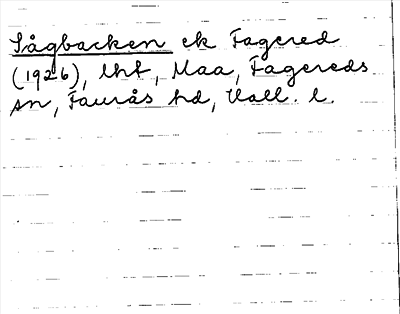 Sågbacken ek Fagered
(1926), lht, Maa, Fagereds
sn, Faurås hd, Hall. l.